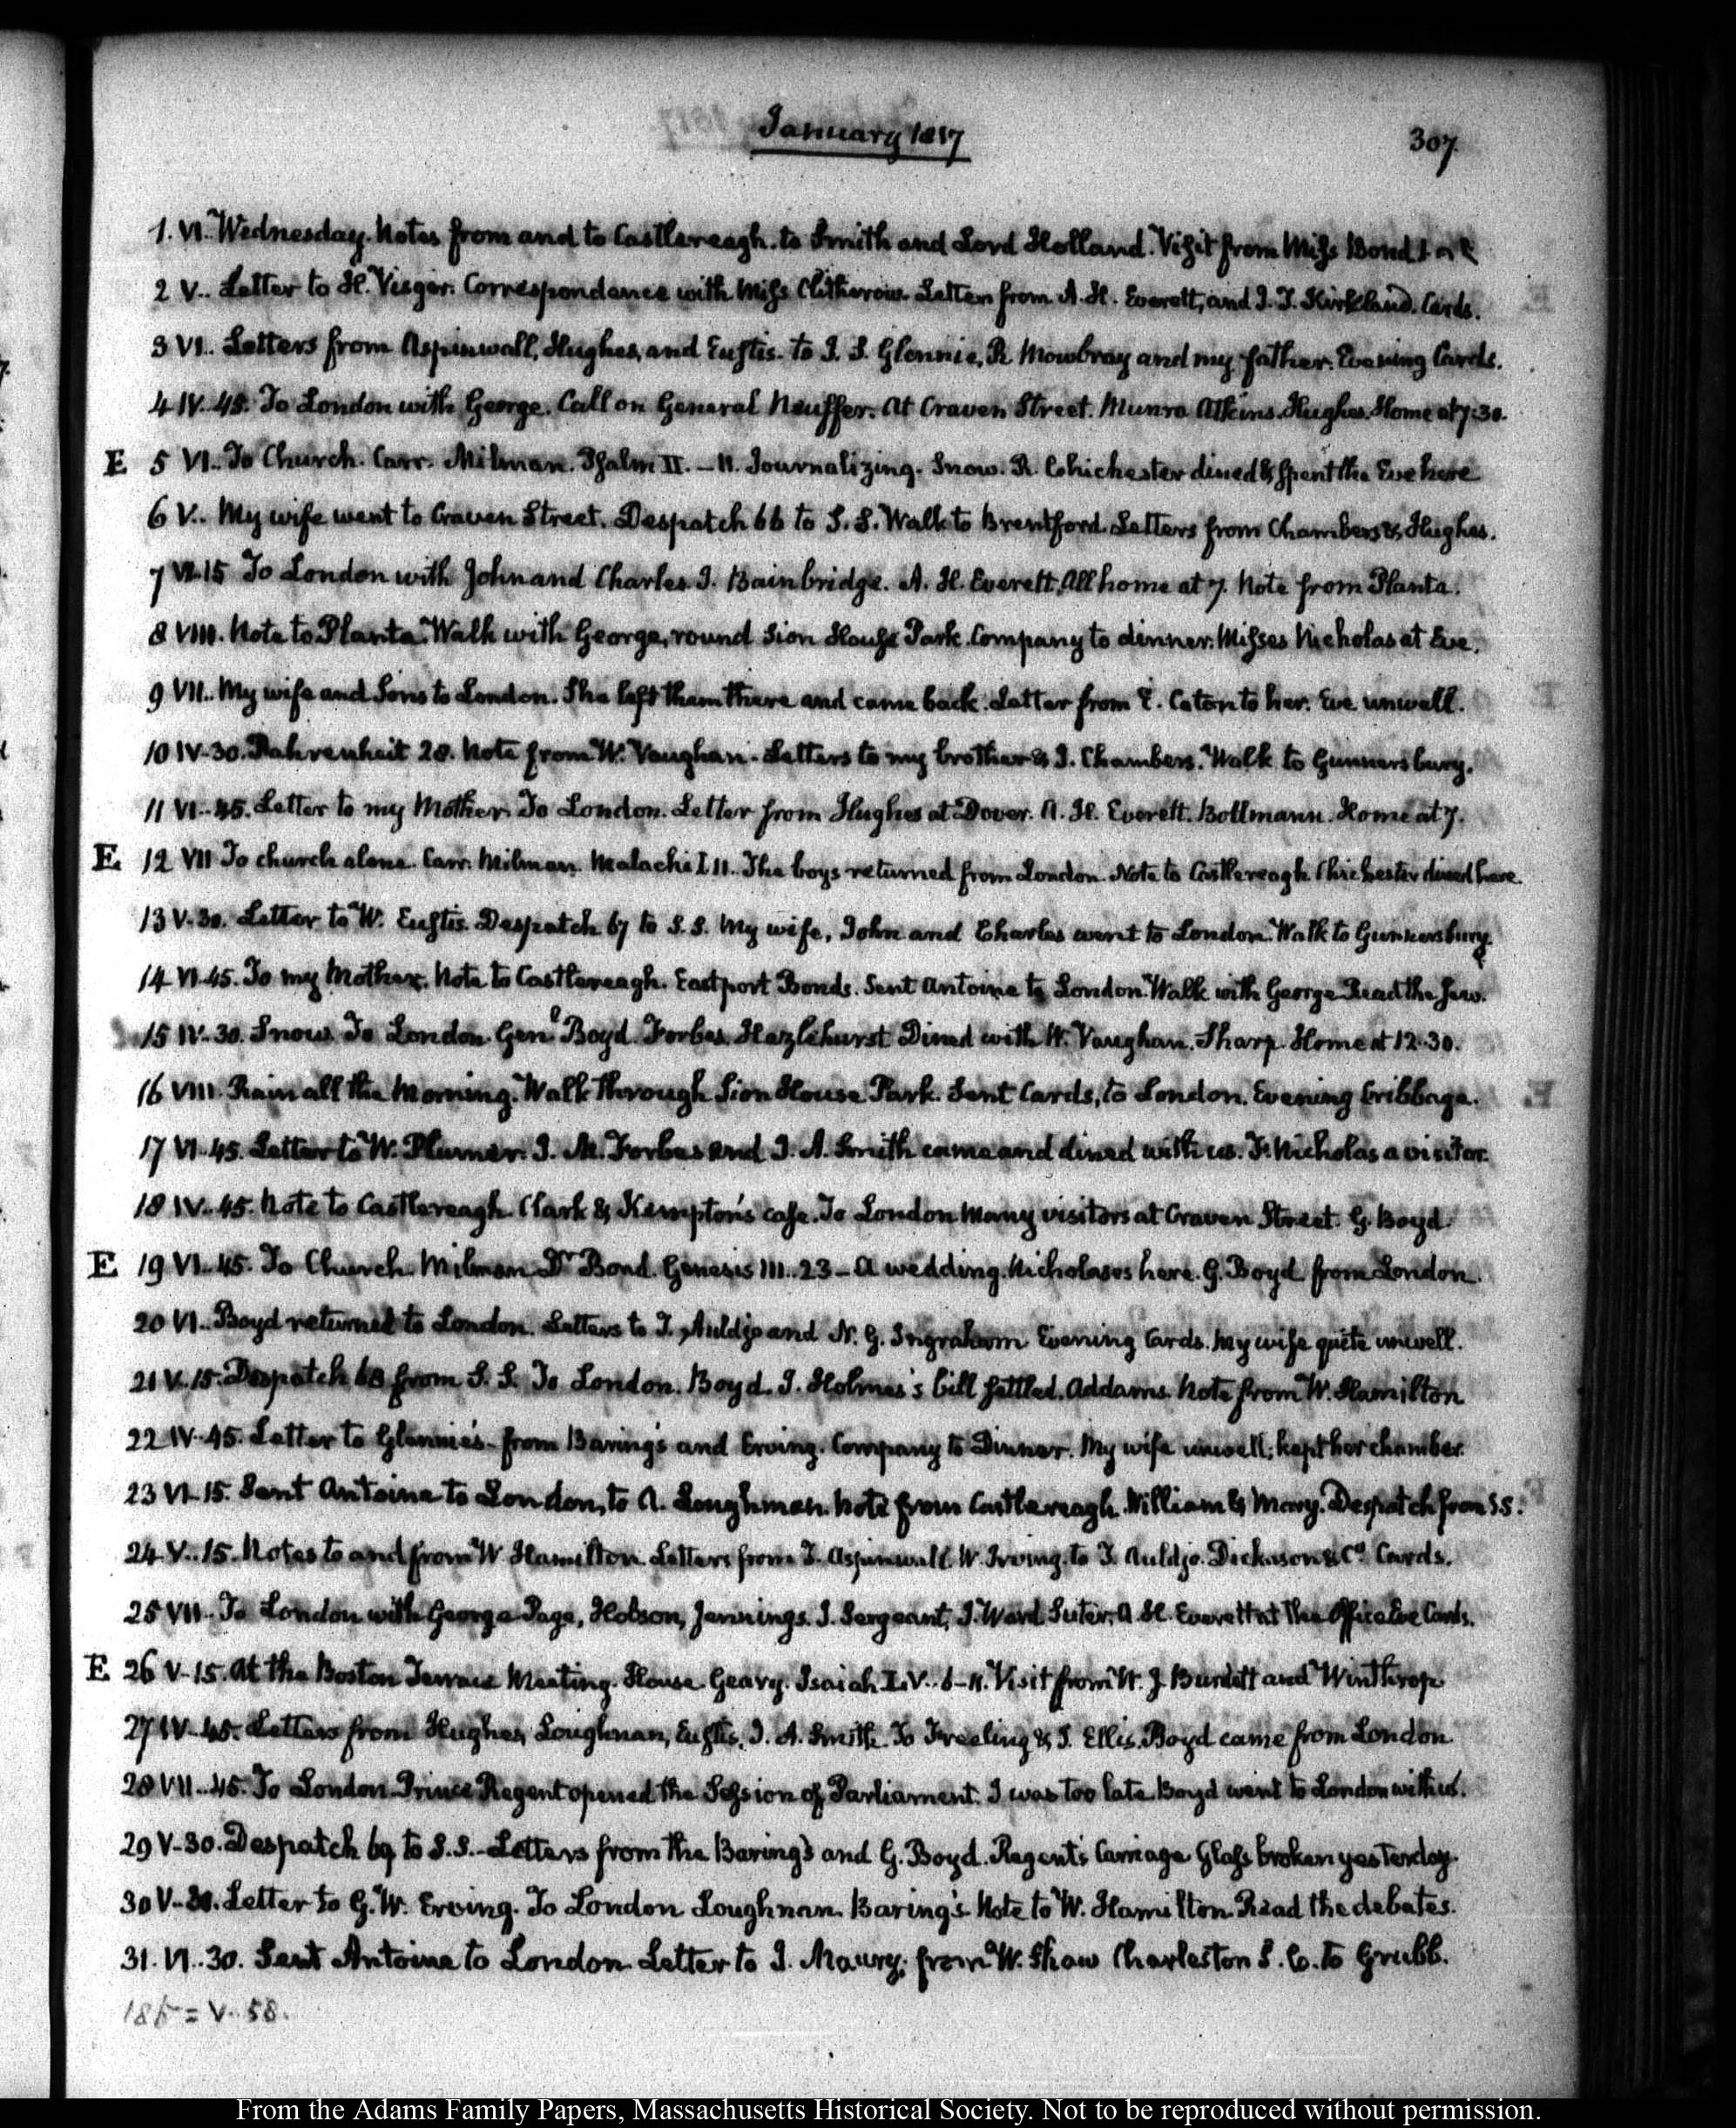 January 1817
307
1. VI. Wednesday. Notes from and to Castlereagh. to Smith and Lord Holland. Visit from Miss Bond
2 V.. Letter to H. Visger. Correspondence with Miss Clitherow. Letters from A. H. Everett, and J. T. Kirkland. Cards.
3 VI.. Letters from Aspinwall, Hughes, and Eustis. to J. S. Glennie, R. Mowbray and my father. Evening Cards.
4 IV..45. To London with George. Call on General Neuffer. At Craven Street. Munro Atkins. Hughes. Home at 7.30.
E 5 VI.. To Church. Carr. Milman. Psalm II. – 11. Journalizing. Snow. R. Chichester dined & spent the Eve here
6 V.. My wife went to Craven Street. Despatch 66 to S. S. Walk to Brentford. Letters from Chambers & Hughes.
7 VI.15 To London with John and Charles. J. Bainbridge. A. H. Everett. All home at 7. Note from Planta.
8 VIII. Note to Planta. Walk with George, round Sion House Park. Company to dinner. Misses Nicholas at Eve.
9 VII.. My wife and Sons to London. She left them there and came back. Letter from E. Caton to her. Eve unwell.
10 IV.30. Fahrenheit 28. Note from W. Vaughan. Letters to my brother & J. Chambers. Walk to Gunnersbury.
11 VI..45. Letter to my Mother. To London. Letter from Hughes at Dover. A. H. Everett. Bollmann. Home at 7.
E. 12 VII To church alone. Carr. Milman. Malachi I 11. The boys returned from London. Note to Castlereagh. Chichester dined here.
13 V.30. Letter to W. Eustis. Despatch 67 to S. S. My wife, John and Charles went to London. Walk to Gunnersbury.
14 VI.45. To my Mother. Note to Castlereagh. Eastport Bonds. Sent Antoine to London. Walk with George. Read the
15 IV.30. Snow. To London. Genl. Boyd. Forbes. Hazlehurst. Dined with W. Vaughan. Sharp. Home at 12.30.
16 VIII. Rain all the Morning. Walk through Sion House Park. Sent Cards, to London. Evening Cribbage.
17 VI.45. Letter to W. Plumer. J. M. Forbes and J. A. Smith came and dined with us. F. Nicholas a visitor.
18 IV..45. Note to Castlereagh. Clark & Kempton's case. To London Many visitors at Craven Street. G. Boyd
E 19 VI..45. To Church. Milman Dr Bond. Genesis III..23 – A wedding. Nicholases here. G. Boyd from London.
20 VI.. Boyd returned to London. Letters to T. Auldjo and N. G. Ingraham Evening Cards. My wife quite unwell.
21 V.15. Despatch 68 from S. S. To London. Boyd. J. Holmes's bill settled. Addams. Note from W. Hamilton
22 IV.45. Letter to Glennie's. from Baring's and Erving. Company to Dinner. My wife unwell; kept her chamber.
23 VI.15. Sent Antoine to London, to A. Loughman. Note from Castlereagh. William & Mary. Despatch from S S.
24 V..15. Notes to and from W Hamilton. Letters from T. Aspinwall. W. Irving. to T. Auldjo. Dickason & Co. Cards.
25 VII.. To London with George Page, Hobson, Jennings. J. Sergeant, J. Ward Suter. A. H. Everett at the Office Eve Cards.
E 26 V.15. At the Boston Terrace Meeting. House. Geary. Isaiah L.V..6–11. Visit from W. J. Burdett and Winthrop
27 IV..45. Letters from Hughes, Loughnan, Eustis, J. A. Smith. To Freeling & T. Ellis. Boyd came from London
28 VII..45. To London. Prince Regent opened the Session of Parliament. I was too late. Boyd went to London with us.
29 V.30. Despatch 69 to S.S. Letters from the Baring's and G. Boyd. Regent's Carriage Glass broken yesterday.
30 V.30. Letter to G. W. Erving. To London Loughnan. Baring's. Note to W. Hamilton. Read the debates.
31. VI..30. Sent Antoine to London. Letter to J. Maury. from W. Shaw Charleston S. C. to Grubb.
= V..58.
From the Adams Family Papers, Massachusetts Historical Society. Not to be reproduced without permission.